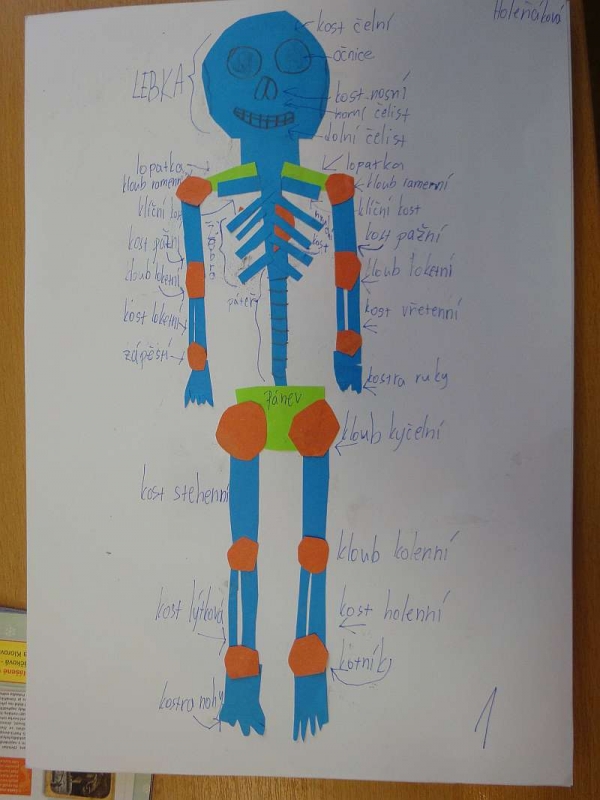 Holeňáková
kost čelní
očnice
LEBKA
kost nosní
horní čelist
dolní čelist
lopatka
lopatka
kloub ramenní
kloub ramenní
klíční kost
klíční kost
kost pažní
kost pažní
žebro
kost
kloub loketní
kloub loketní
páteř
kost loketní
kost vřetenní
zápěstí
kostra ruky
Pánev
kloub kyčelní
kost stehenní
kloub kolenní
kost lýtková
kost holenní
kotníky
kostra nohy
1